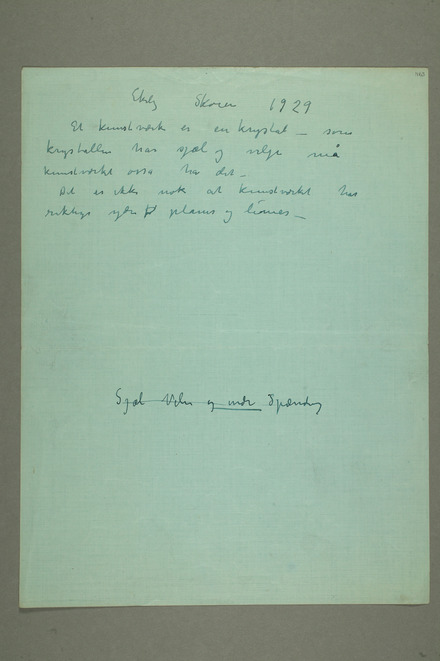 Ekely Skøien 1929
Et kunstværk er en krystal – som
krystallen har sjæl og vilje må
kunstværket også ha det –
Det er ikke nok at kunstværket har
riktige ydre planes og linnes –
Sjæl Vilje og indre Spænding